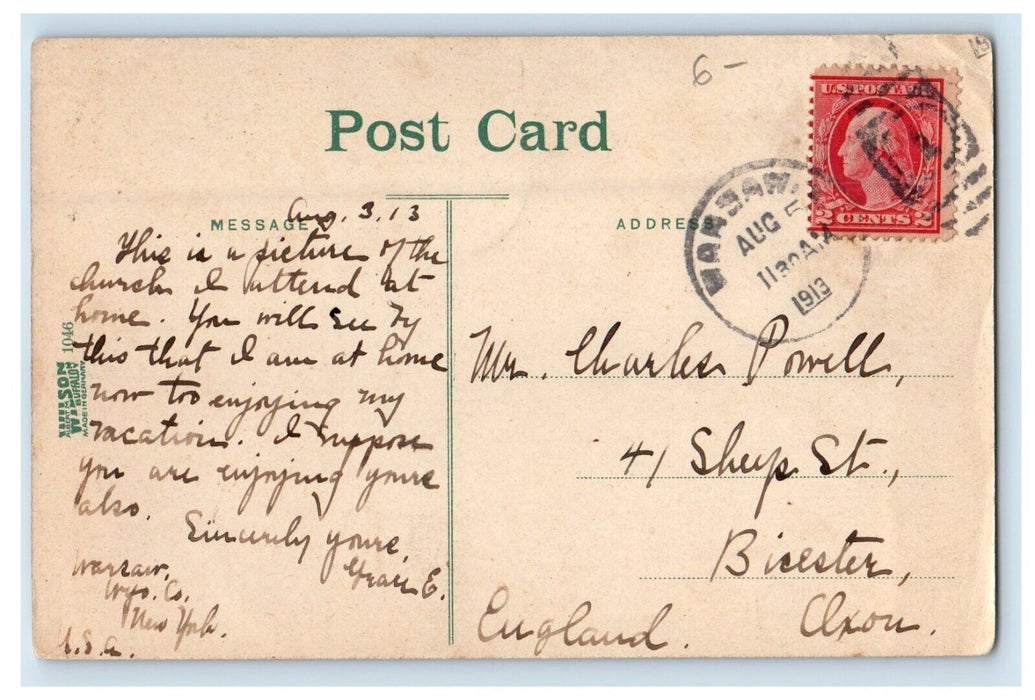 6-
Post Card
U.S. POSTA
2 CENTS 2
WARSAW
AUG 5
1130AM
1913
MESSAGE
ADDRESS
Aug. 3, 13
This is a picture of the
church I attend at
home. You will see by
this that I am at home
now too enjoying my
vacation. I suppose
you are enjoying yours
also.
Sincerely yours,
Grace E.
Warsaw,
Wyo. Co.
New York.
U.S.A.
1046
WILSON
BUFFALO
MADE IN GERMANY
Mr. Charles Powell,
41 Sheep St.,
Bicester,
Oxon.
England.